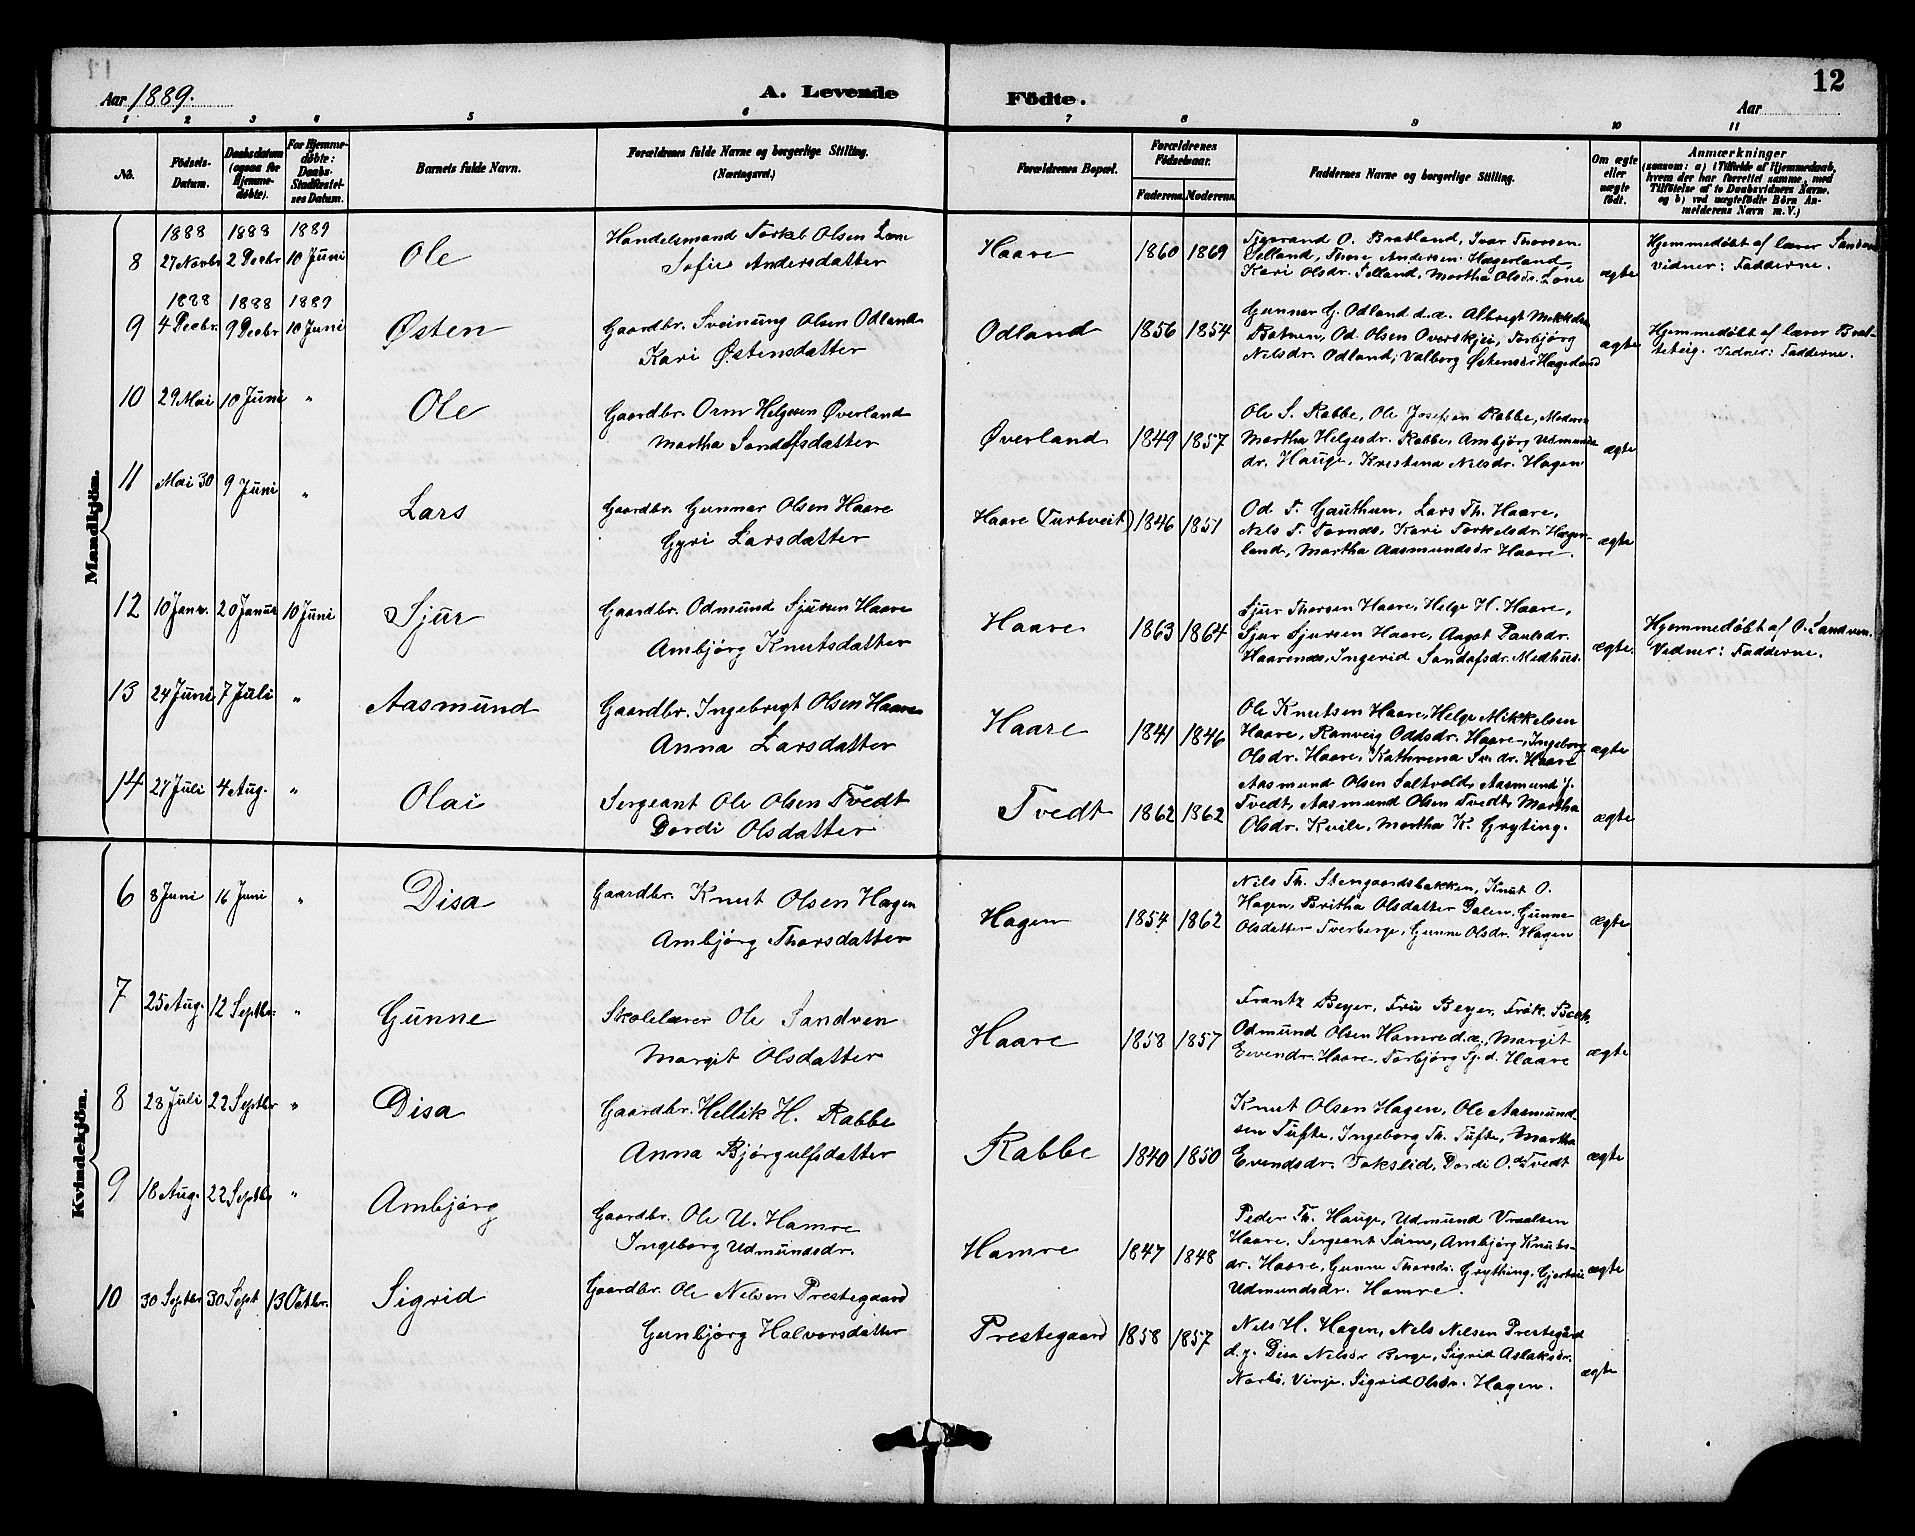 12
Aar 1889.
A. Levende Födte.
Aar
1 2 3 4 5 6 7 8 9 10 11
No.
Födsels-Datum.
Daabsdatum (ogsaa for Hjemmedøbte).
For Hjemmedøbte: Daabs-Stadfæstelses Datum.
Barnets fulde Navn.
Forældrenes fulde Navne og borgerlige Stilling. (Næringsvei.)
Forældrenes Bopæl.
Forældrenes Fødselsaar.
Faderens. Moderens.
Faddernes Navne og borgerlige Stilling.
Om ægte eller uægte født.
Anmærkninger
(saasom: a) i Tilfælde af Hjemmedaab, hvem der har forrettet samme, med Tilføielse af to Daabsvidners Navne, og b) ved uægtefødte Børn Anmelderens Navn m. V.)
Mandkjön.
1888 1888 1889
8 27 Novbr 2 Decbr 10 Juni Ole
Handelsmand Torkel Olsen Lone
Sofie Andersdatter
Haare 1860 1869
Tjøstand O. Bratland, Ivar Thorsen
Selland, Thore Andersen Hægerland,
Kari Olsdr. Selland, Martha Olsdr. Lone
ægte
Hjemmedøbt af lærer Sandven
Vidner: Fadderne.
1888 1888 1889
9 4 Decbr. 9 Decbr 10 Juni Østen
Gaardbr. Sveinung Olsen Odland
Kari Østensdatter
Odland 1856 1854
Gunnar G. Odland d.æ. Albregt Mikkelsen
Botnen, Od Olsen Overskjei, Torbjørg
Nilsdr. Odland, Valborg Østensdr Hægerland
ægte
Hjemmedøbt af lærer Brat-
teteig. Vidner: Fadderne.
10 29 Mai 10 Juni " Ole
Gaardbr. Orm Helgesen Øverland
Martha Sondofsdatter
Øverland 1849 1857
Ole S. Rabbe, Ole Josefsen Rabbe, Moderen
Martha Helgesdr. Rabbe, Ambjørg Udmunds
dr. Hauge, Kristena Nilsdr. Hagen
ægte
11 Mai 30 9 Juni " Lars
Gaardbr. Gunnar Olsen Haare
Gyri Larsdatter
Haare (Turtveit) 1846 1851
Od T. Gauthun, Lars Th. Haare,
Nils T. Tornes, Kari Torkelsdr. Hæger-
land, Martha Aasmundsdr Haare.
ægte
12 10 Janv. 20 Januar 10 Juni Sjur
Gaardbr. Odmund Sjursen Haare
Ambjørg Knutsdatter
Haare 1863 1864
Sjur Thorsen Haare, Helge H. Haare,
Sjur Sjursen Haare, Aagot Paulsdr.
Haarenæs, Ingerid Sondofsdr. Midhus.
ægte.
Hjemmedøbt af O. Sandven.
Vidner: Fadderne.
13 24 Juni 7 Juli " Aasmund
Gaardbr. Ingebregt Olsen Haare
Anna Larsdatter
Haare 1841 1846
Ole Knutsen Haare, Helge Mikkelsen
Haare, Ranveig Oddsdr. Haare, Ingeborg
Olsdr. Haare, Kathrena Sv. dr. Haare
ægte
14 27 Juli 4 Aug. " Olai
Sergeant Ole Olsen Tvedt
Dordi Olsdatter
Tvedt 1862 1862
Aasmund Olsen Saltvold, Aasmund J.
Tvedt, Aasmund Olsen Tvedt, Martha
Olsdr. Kvile, Martha K. Gryting.
ægte
Kvindekjön.
6 8 Juni 16 Juni " Disa
Gaardbr. Knut Olsen Hagen
Ambjørg Thorsdatter
Hagen 1854 1862
Nils Th. Stengaardsbakken, Knut O.
Hagen, Britha Olsdatter Dalen, Gunne
Olsdatter Tverberge, Gunne Olsdr. Hagen
ægte
7 25 Aug. 12 Septbr. " Gunne
Skolelærer Ole Sandven
Margit Olsdatter
Haare 1858 1857
Frantz Beyer, Fru Beyer, Frøk.
Odmund Olsen Hamre d.æ., Margit
Eivendr. Haare, Torbjørg Sj. d. Haare
ægte
8 28 Juli 22 Septbr " Disa
Gaardbr. Hellik H. Rabbe
Anna Bjørgulfsdatter
Rabbe 1840 1850
Knut Olsen Hagen, Ole Aasmund
sen Tufte, Ingeborg Th. Tufte, Martha
Evendsdr. Tokslid, Dordi O.dr Tvedt
ægte
9 18 Aug. 22 Septbr " Ambjørg
Gaardbr. Ole U. Hamre
Ingeborg Udmundsdr.
Hamre 1847 1848
Peder Th. Hauge, Udmund Vraalsen
Haare, Sergeant Seime, Ambjørg Knuts-
dr. Haare, Gunne Thorsdr. Grything,
Udmundsdr. Hamre.
ægte
10 30 Septbr 30 Sept 13 Octbr. Sigrid
Gaardbr. Ole Nilsen Prestegaard
Gunbjørg Halvorsdatter
Prestegaard 1858 1857
Nils H. Hagen, Nils Nilsen Prestegård
d.y. Disa Nilsdr Berge, Sigrid Aslaksdr.
Vinje. Sigrid Olsdr. Hagen.
ægte